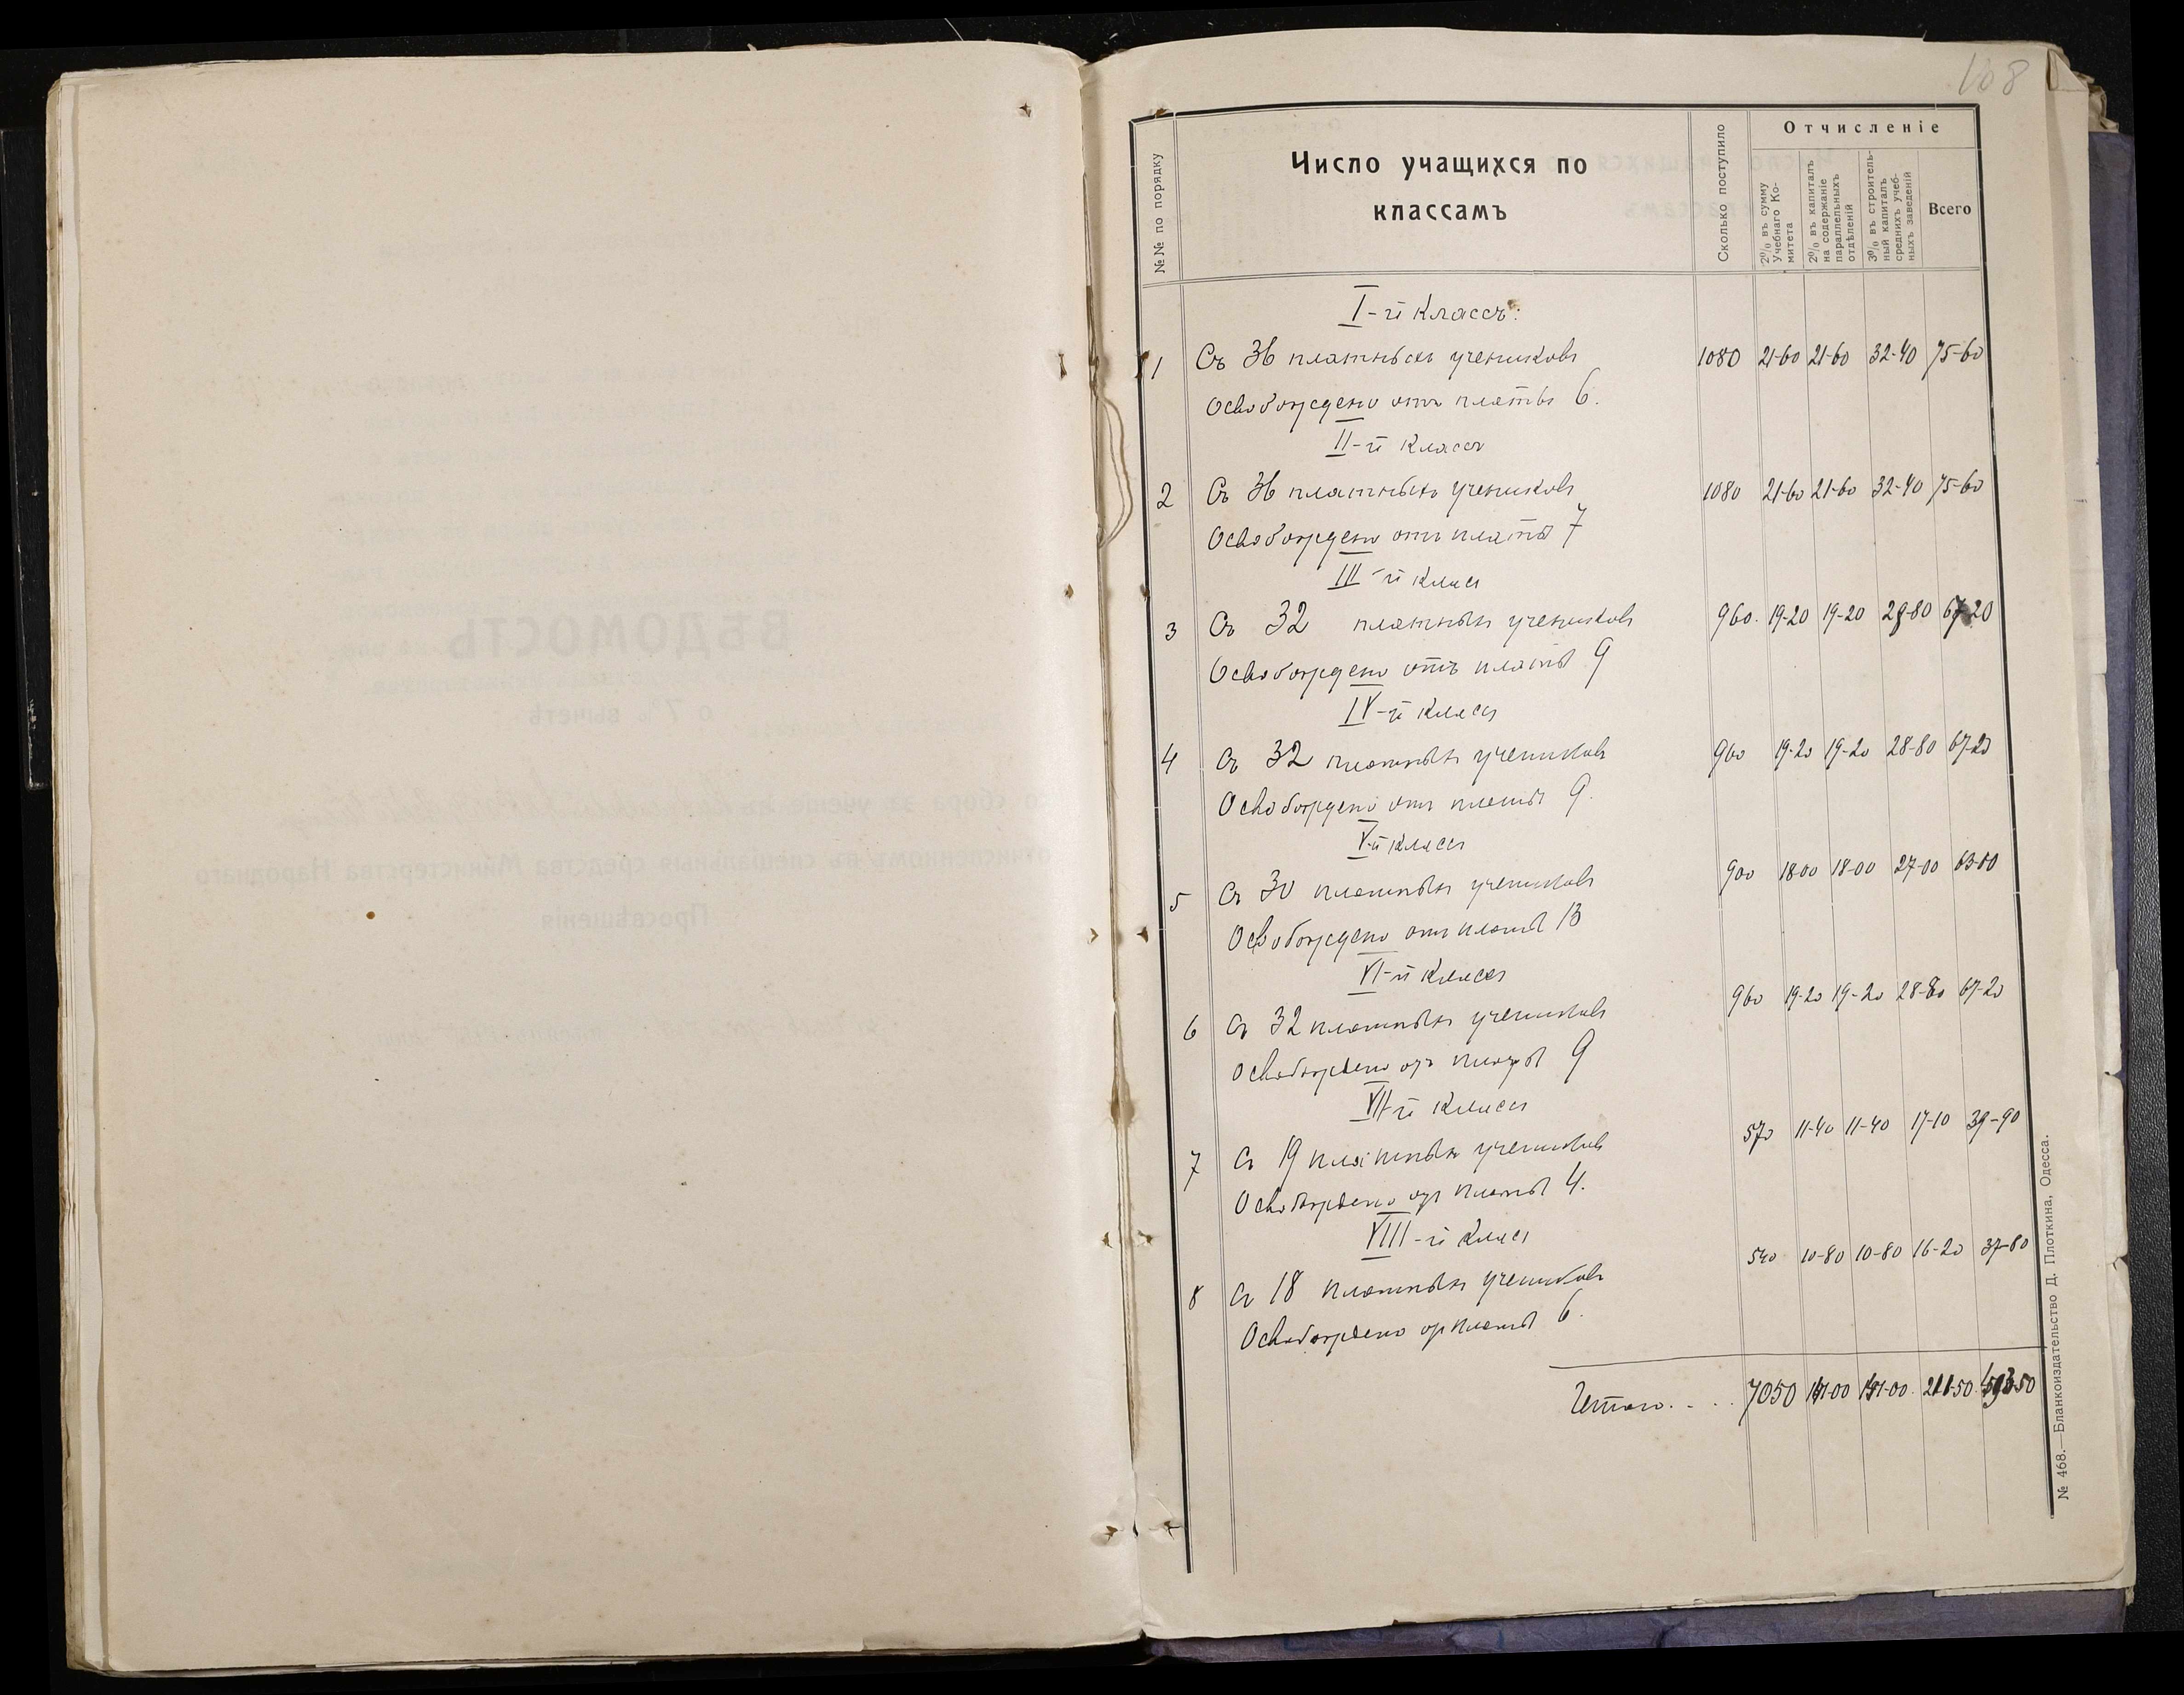 108
№№ по порядку
Число учащихся по
классамъ
Сколько поступило
Отчисленіе
2% въ сумму
Учебнаго Ко-
митета
2% въ капиталъ
на содержаніе
параллельныхъ
отдѣленій
3% въ строитель-
ный капиталъ
среднихъ учеб-
ныхъ заведеній
Всего
I-й классъ:
1 Съ 36 платныхъ учениковъ 1080 21-60 21-60 32-40 75-60
Освобождено отъ платы 6.
II-й классъ
2 Съ 36 платныхъ учениковъ 1080 21-60 21-60 32-40 75-60
Освобождено отъ платы 7
III-й классъ
3 Съ 32 платныхъ учениковъ 960. 19-20 19-20 28-80 67-20
Освобождено отъ платы 9
IV-й классъ
4 Съ 32 платныхъ учениковъ 960 19-20 19-20 28-80 67-20
Освобождено отъ платы 9.
V-й классъ
5 Съ 30 платныхъ учениковъ 900 18-00 18-00 27-00 63-00
Освобождено отъ платы 13
VI-й классъ
6 Съ 32 платныхъ учениковъ 960 19-20 19-20 28-80 67-20
Освобождено отъ платы 9
VII-й классъ
7 Съ 19 платныхъ учениковъ 570 11-40 11-40 17-10 39-90
Освобождено отъ платы 4.
VIII-й классъ
8 Съ 18 платныхъ учениковъ 540 10-80 10-80 16-20 37-80
Освобождено отъ платы 6.
Итого. . . . 7050 141-00 141-00. 211-50 493-50
№ 468.—Бланкоиздательство Д. Плоткина, Одесса.
ВѢДОМОСТЬ
о 7% вычетѣ
отчисленномъ въ спеціальныя средства Министерства Народнаго
Просвѣщенія